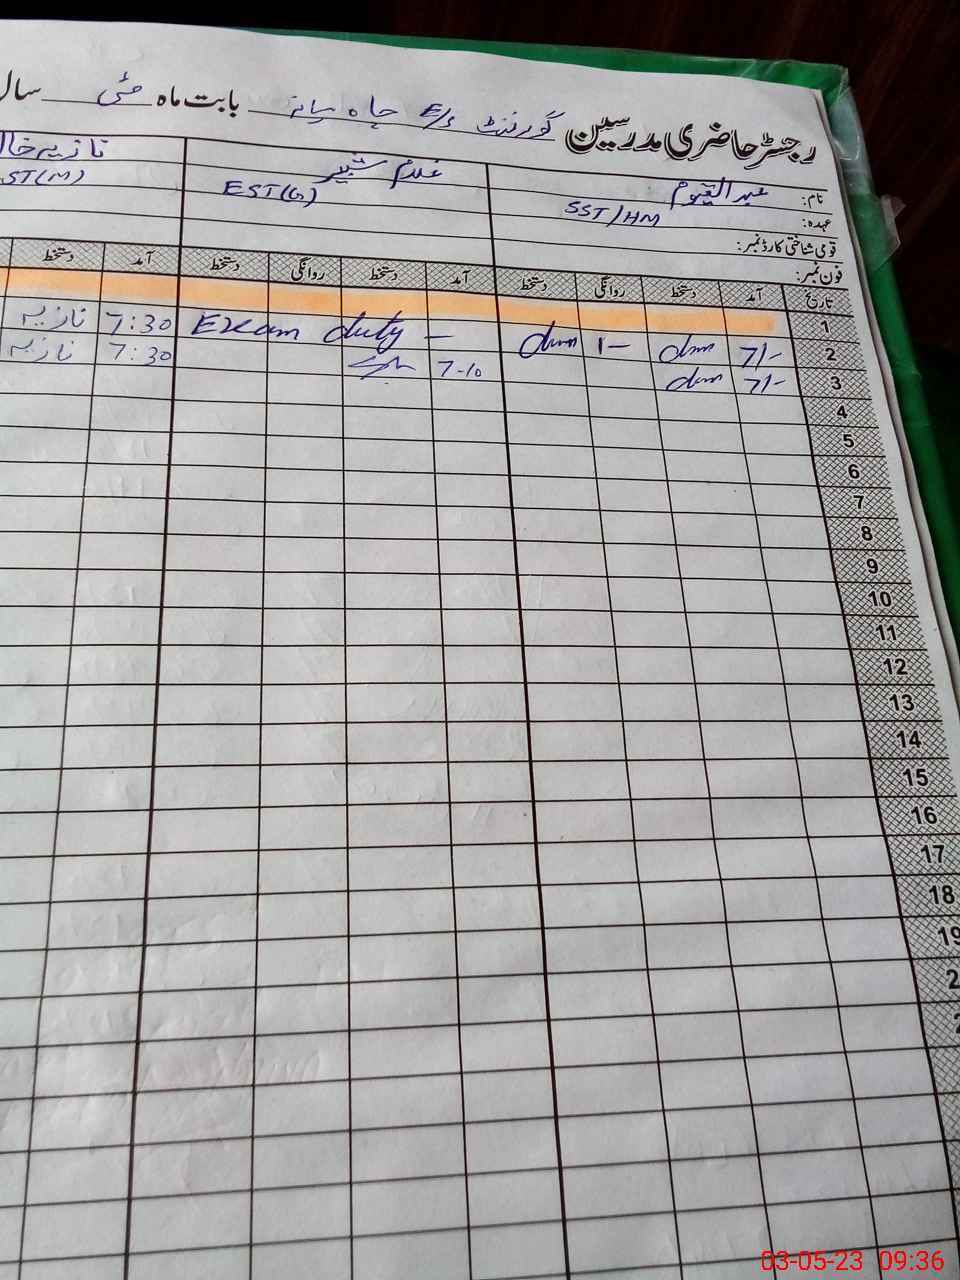 رجسٹر حاضری مدرسین گورنمنٹ E/s چاہ بابت ماہ مئی سال
نام: عبدالقیوم غلام شبیر نازیہ
عہدہ: SST/HM EST(G) ST(M)
قومی شناختی کارڈ نمبر:
فون نمبر:
تاریخ آمد دستخط روانگی دستخط آمد دستخط روانگی دستخط آمد دستخط
1
2 7/- 1- Exam duty - 7:30 نازیہ
3 7/- 7-10 7:30 نازیہ
4
5
6
7
8
9
10
11
12
13
14
15
16
17
18
19
2
2
03-05-23 09:36